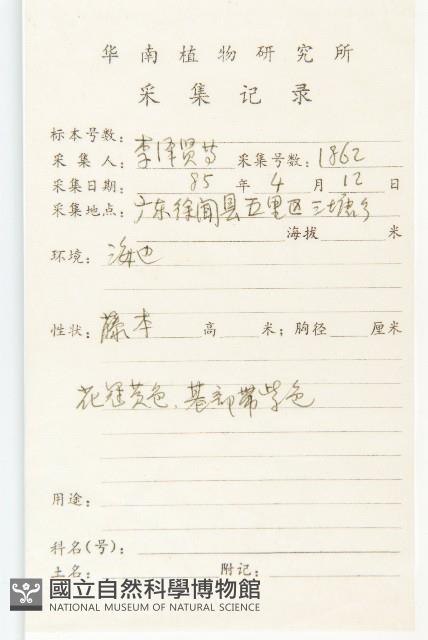 华南植物研究所
采集记录
标本号数:
采集人: 李泽贤等 采集号数: 1862
采集日期: 85 年 4 月 12 日
采集地点: 广东徐闻县五里区三塘乡
海拔 米
环境: 海边
性状: 藤本 高 米; 胸径 厘米
花冠黄色、基部带紫色
用途:
科名(号):
土名: 附记:
國立自然科學博物館
NATIONAL MUSEUM OF NATURAL SCIENCE